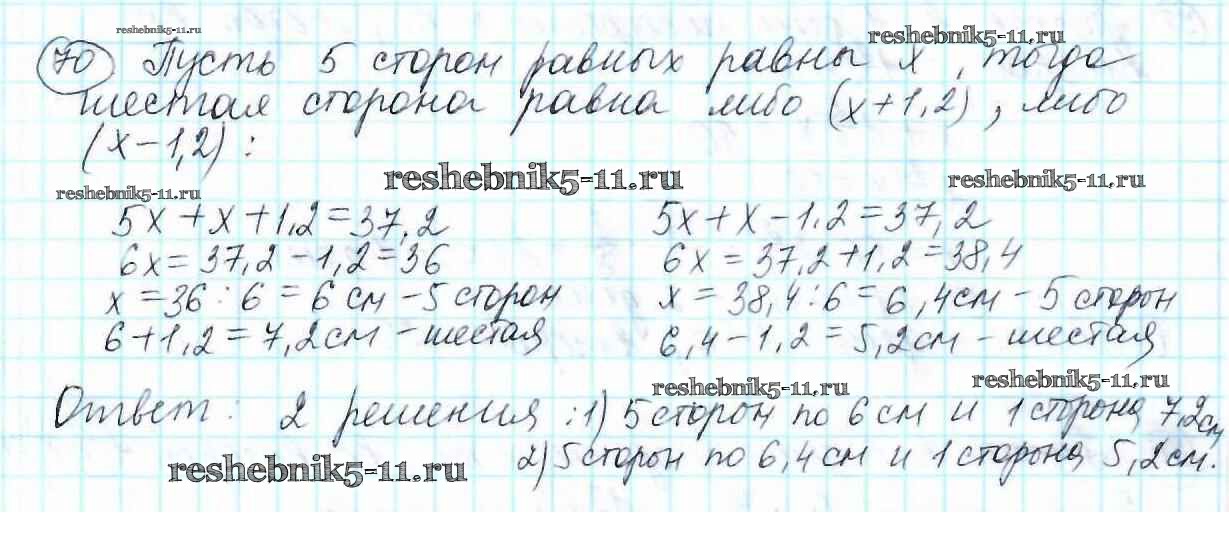 reshebnik5-11.ru
reshebnik5-11.ru
70 Пусть 5 сторон равных равны x, тогда
шестая сторона равна либо (x+1,2), либо
(x-1,2):
reshebnik5-11.ru
reshebnik5-11.ru
reshebnik5-11.ru
5x+x+1,2=37,2
6x=37,2-1,2=36
x=36:6=6 см - 5 сторон
6+1,2=7,2см - шестая
5x+x-1,2=37,2
6x=37,2+1,2=38,4
x=38,4:6=6,4см - 5 сторон
6,4-1,2=5,2см - шестая
reshebnik5-11.ru
reshebnik5-11.ru
Ответ. 2 решения: 1) 5 сторон по 6 см и 1 сторона 7,2см
2) 5 сторон по 6,4 см и 1 сторона 5,2 см.
reshebnik5-11.ru